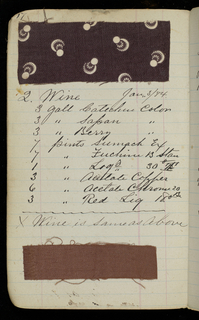 2. Wine Jan 3/84
3 galls Catechu Color
3 " Sapan "
3 " Berry "
½ pints Sumach Ex
½ " Fuchine B Stan
1 " Logd 30
3 " Acetate Copper
6 " Acetate Chrome 20
3 " Red Liq 18
X Wine is Same as above